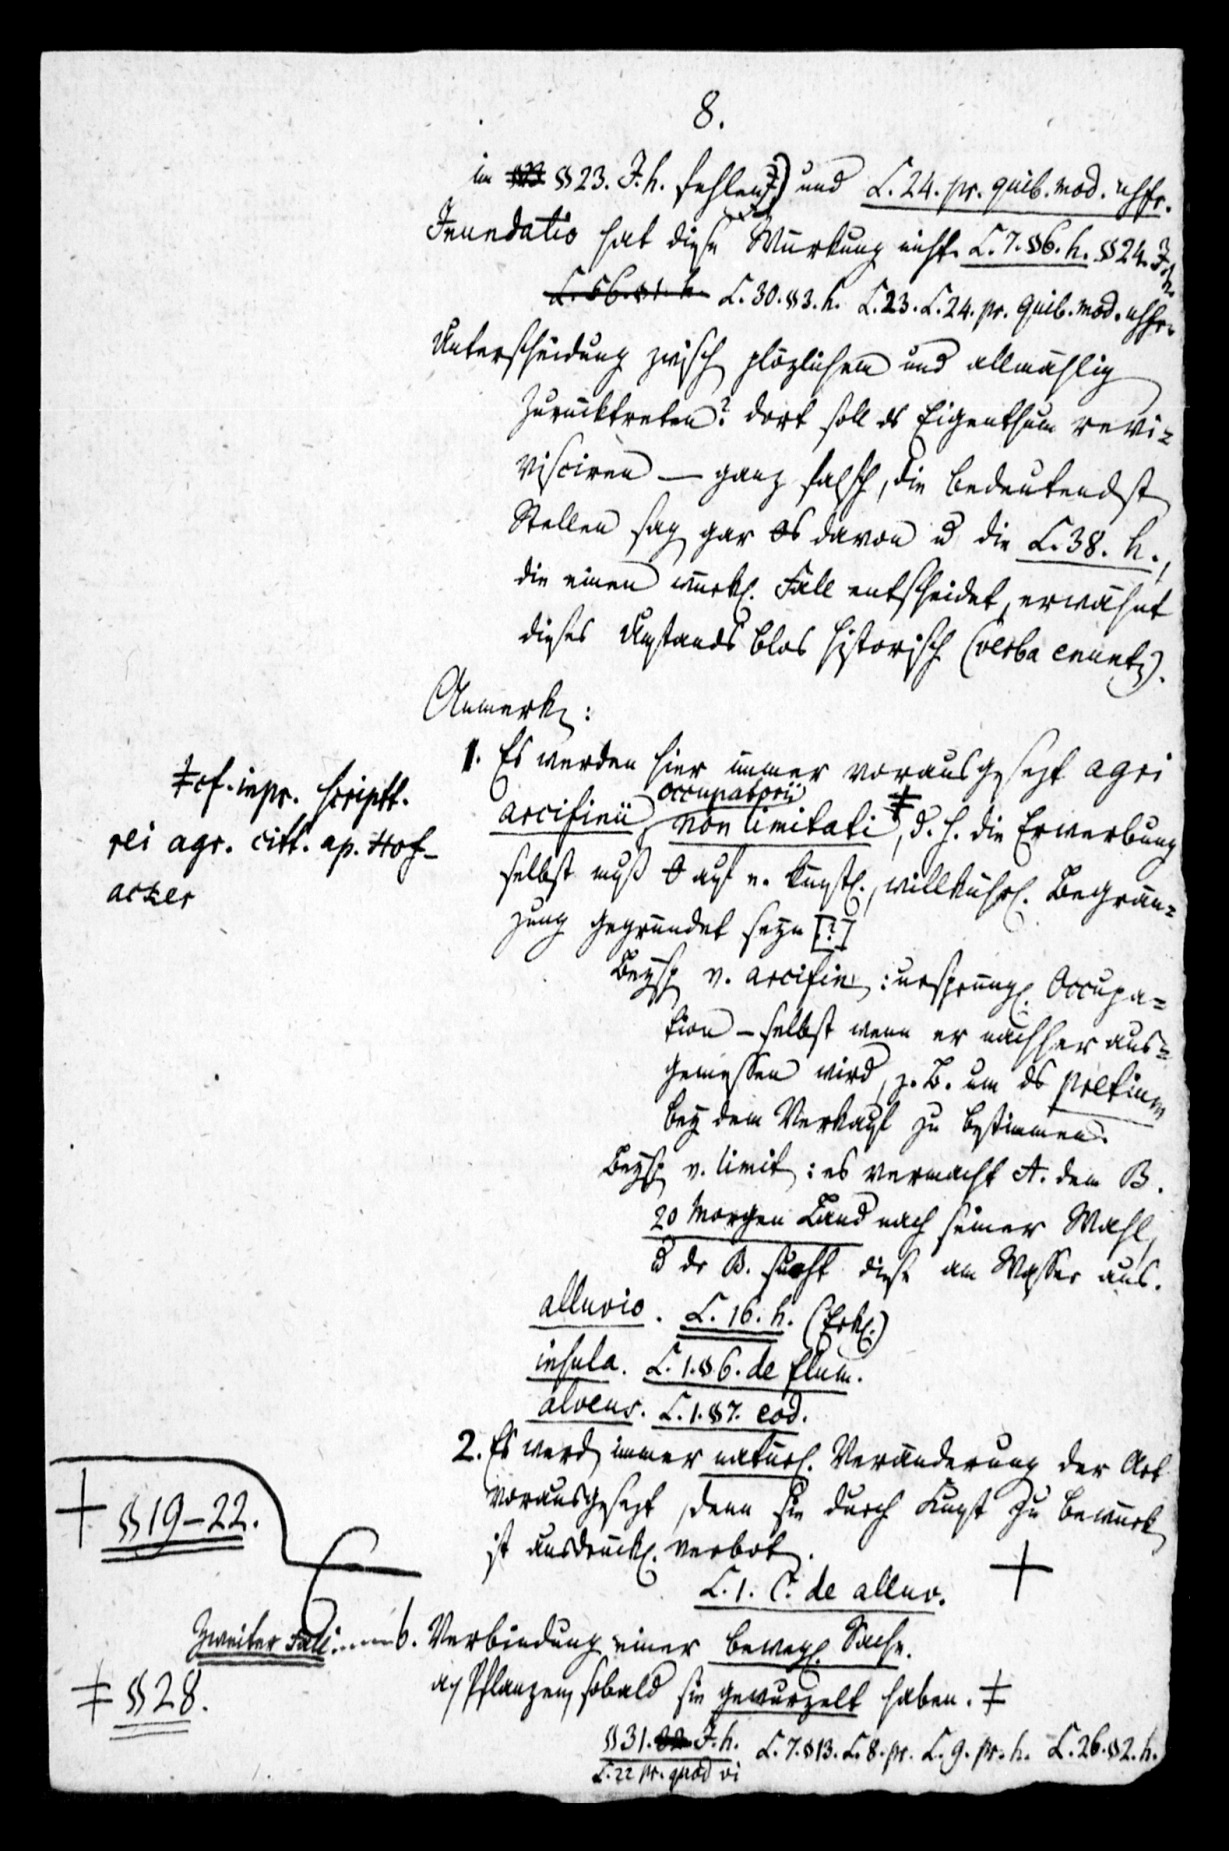 8.
in §23. J. h. fehlend) und L. 24. pr. quib. mod. usfr.
Inundatio hat diese Würkung nicht. L. 7. §6. h. §24. J. h.
L. 56. §1. h. L. 30. §3. h. L. 23. L. 24. pr. quib. mod. usfr.
Unterscheidung zwisch plözlichem und allmählig
Zurücktreten? dort soll ds Eigenthum revi=
visciren — ganz falsch, die bedeutendst
Stellen sag gar davon u die L. 38. h.,
die einen würkl. Fall entscheidet, erwähnt
dieses Umstands blos historisch (verba enunt).
Anmerk:
1. Es werden hier immer vorausgesezt agri
occupatorii
arcifinii, non limitati ‡, d. h. die Erwerbung
selbst muß auf e. künstl., willkührl. Begrän=
zung gegründet seyn [?]
‡ cf. inpr. scriptt.
rei agr. citt. ap. Hof-
acker
Beysp v. arcifin: ursprüngl. Occupa=
tion – selbst wenn er nachher aus=
gemessen wird, z. B. um ds pretium
bey dem Verkauf zu bestimmen.
Beysp v. limit: es vermacht A. dem B.
20 Morgen Land nach seiner Wahl,
u dr B. sucht diese am Wasser aus.
alluvio. L. 16. h. (Erkl.)
insula. L. 1. §6. de flum.
alveus. L. 1. §7. eod.
2. Es werd immer natürl. Veränderung der Art
vorausgesezt, denn sie durch Kunst zu bewürk
ist ausdrückl. verbot.
L. 1. C. de alluv.
+ §19–22.
+
Zweiter Fall: b. Verbindung einer bewegl. Sache.
a) Pflanzen, sobald sie gewurzelt haben. ‡
‡ §28.
§31. J. h. L. 7. §13. L. 8. pr. L. 9. pr. h. L. 26. §2. h.
L. 22 pr. quod vi